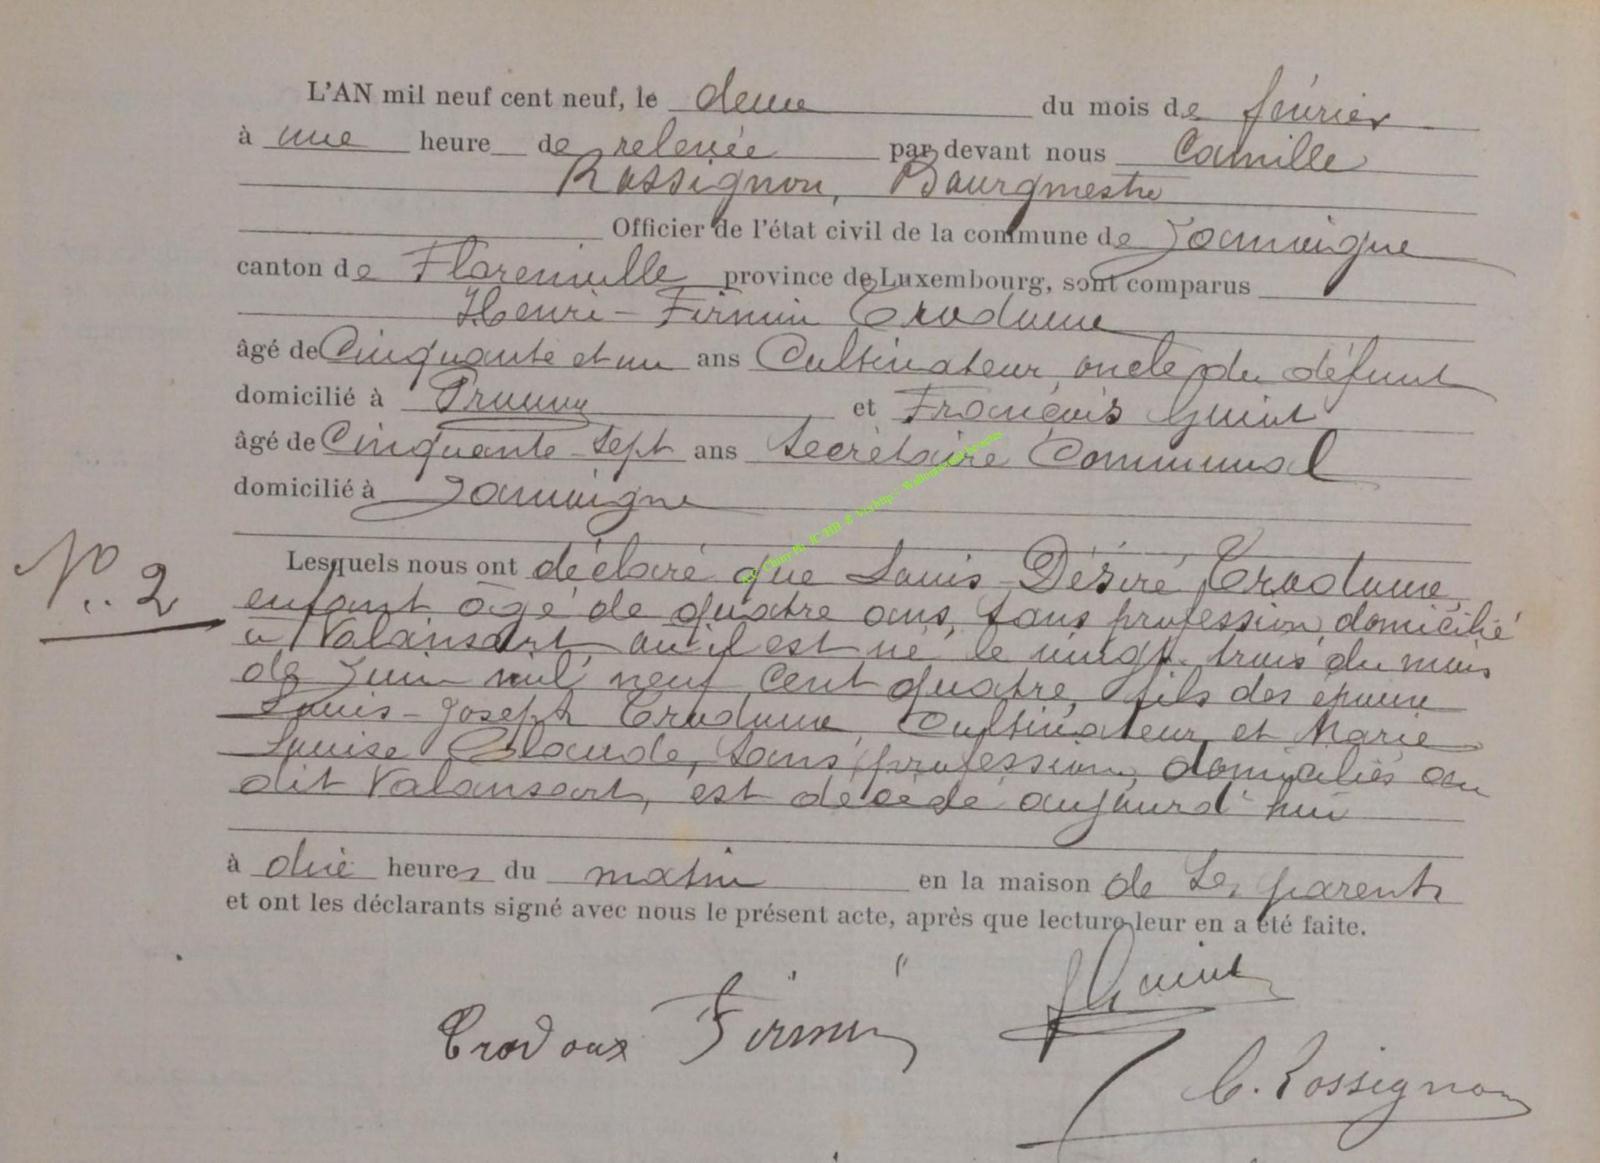 L'AN mil neuf cent neuf, le deux du mois de février
à une heure de relevée par devant nous Camille
Rossignon, Bourgmestre
Officier de l'état civil de la commune de Jamoigne
canton de Florenville province de Luxembourg, sont comparus
Henri-Firmin Crodoux
âgé de Cinquante et un ans Cultivateur, oncle du défunt
domicilié à Prouvy et François Guiot
âgé de Cinquante-sept ans Secrétaire Communal
domicilié à Jamoigne
Lesquels nous ont déclaré que Louis-Désiré Crodoux
N° 2
enfant âgé de quatre ans, sans profession, domicilié
à Valansart, où il est né le vingt trois du mois
de Juin mil neuf cent quatre, fils des époux
Louis-Joseph Crodoux, Cultivateur, et Marie
Louise Claude, sans profession, domiciliés au
dit Valansart, est décédé aujourd'hui
à dix heures du matin en la maison de ses parents
et ont les déclarants signé avec nous le présent acte, après que lecture leur en a été faite.
Crodoux Firmin
C. Rossignon